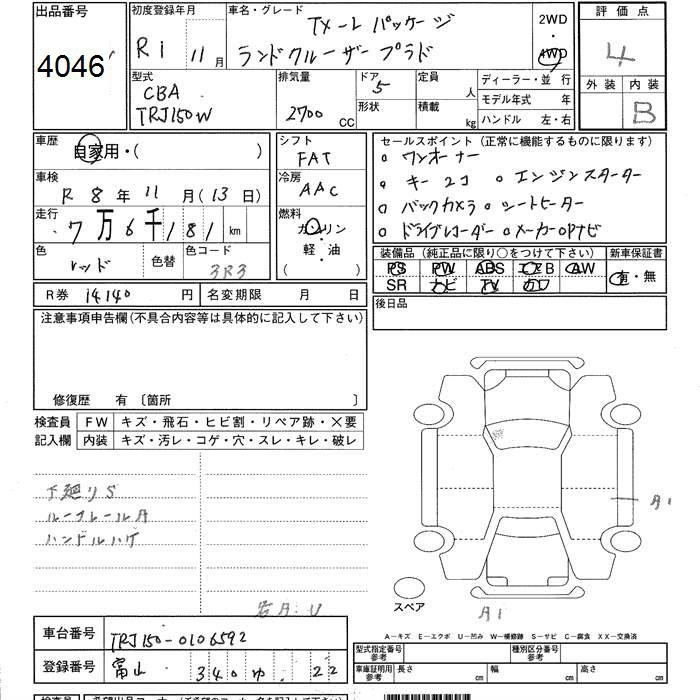 出品番号
4046
初度登録年月
R1 11月
車名・グレード
TX-L パッケージ
ランドクルーザー プラド
2WD
・
4WD
評価点
4
外装 内装
B
型式
CBA
TRJ150W
排気量
2700
CC
ドア
5
形状
定員
人
積載
kg
ディーラー・並行
モデル年式 年
ハンドル 左・右
車歴
自家用・( )
車検
R 8年 11月(13日)
走行
7万6千181km
色
レッド
色替
色コード
3R3
シフト
FAT
冷房
AAC
燃料
ガソリン
・
軽・油
( )
セールスポイント (正常に機能するものに限ります)
○ ワンオーナー
○ キー2コ ○ エンジンスターター
○ バックカメラ ○ シートヒーター
○ ドライブレコーダー ○ メーカーOPナビ
装備品 (純正品に限り○をつけて下さい)
PS PW ABS エアB AW
SR ナビ TV カワ
新車保証書
有・無
R券 14140 円
名変期限 月 日
後日品
注意事項申告欄(不具合内容等は具体的に記入して下さい)
修復歴 有 〔箇所 〕
検査員
記入欄
FW キズ・飛石・ヒビ割・リペア跡・×要
内装 キズ・汚レ・コゲ・穴・スレ・キレ・破レ
下廻りS
ルーフレールA
ハンドルハゲ
A1
A1
スペア
A-キズ E-エクボ U-凹み W-補修跡 S-サビ C-腐食 XX-交換済
車台番号
TRJ150-0106592
登録番号
富山 340 ゆ 22
型式指定番号
参考
種別区分番号
参考
車庫証明用
参考
長さ cm 幅 cm 高さ cm